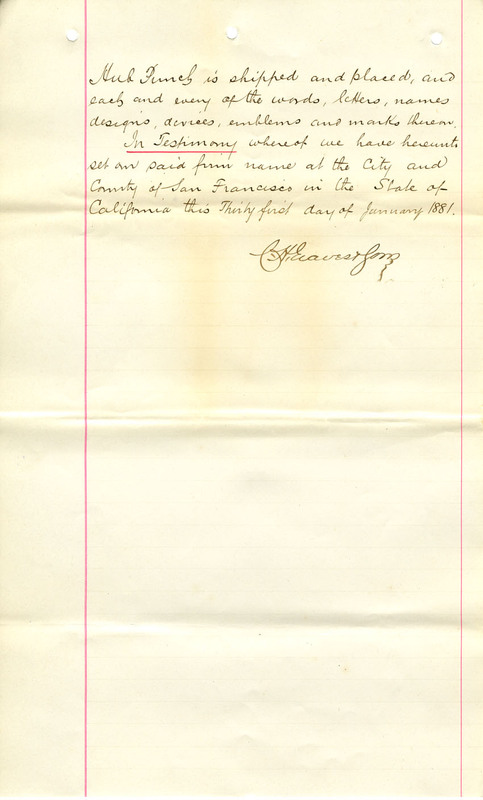 Hub Punch is shipped and placed, and
each and every of the words, letters, names
designs, devices, emblems and marks thereon.
In Testimony whereof we have hereunto
set our said firm name at the City and
County of San Francisco in the State of
California this Thirty first day of January 1881.
C H Graves & Sons